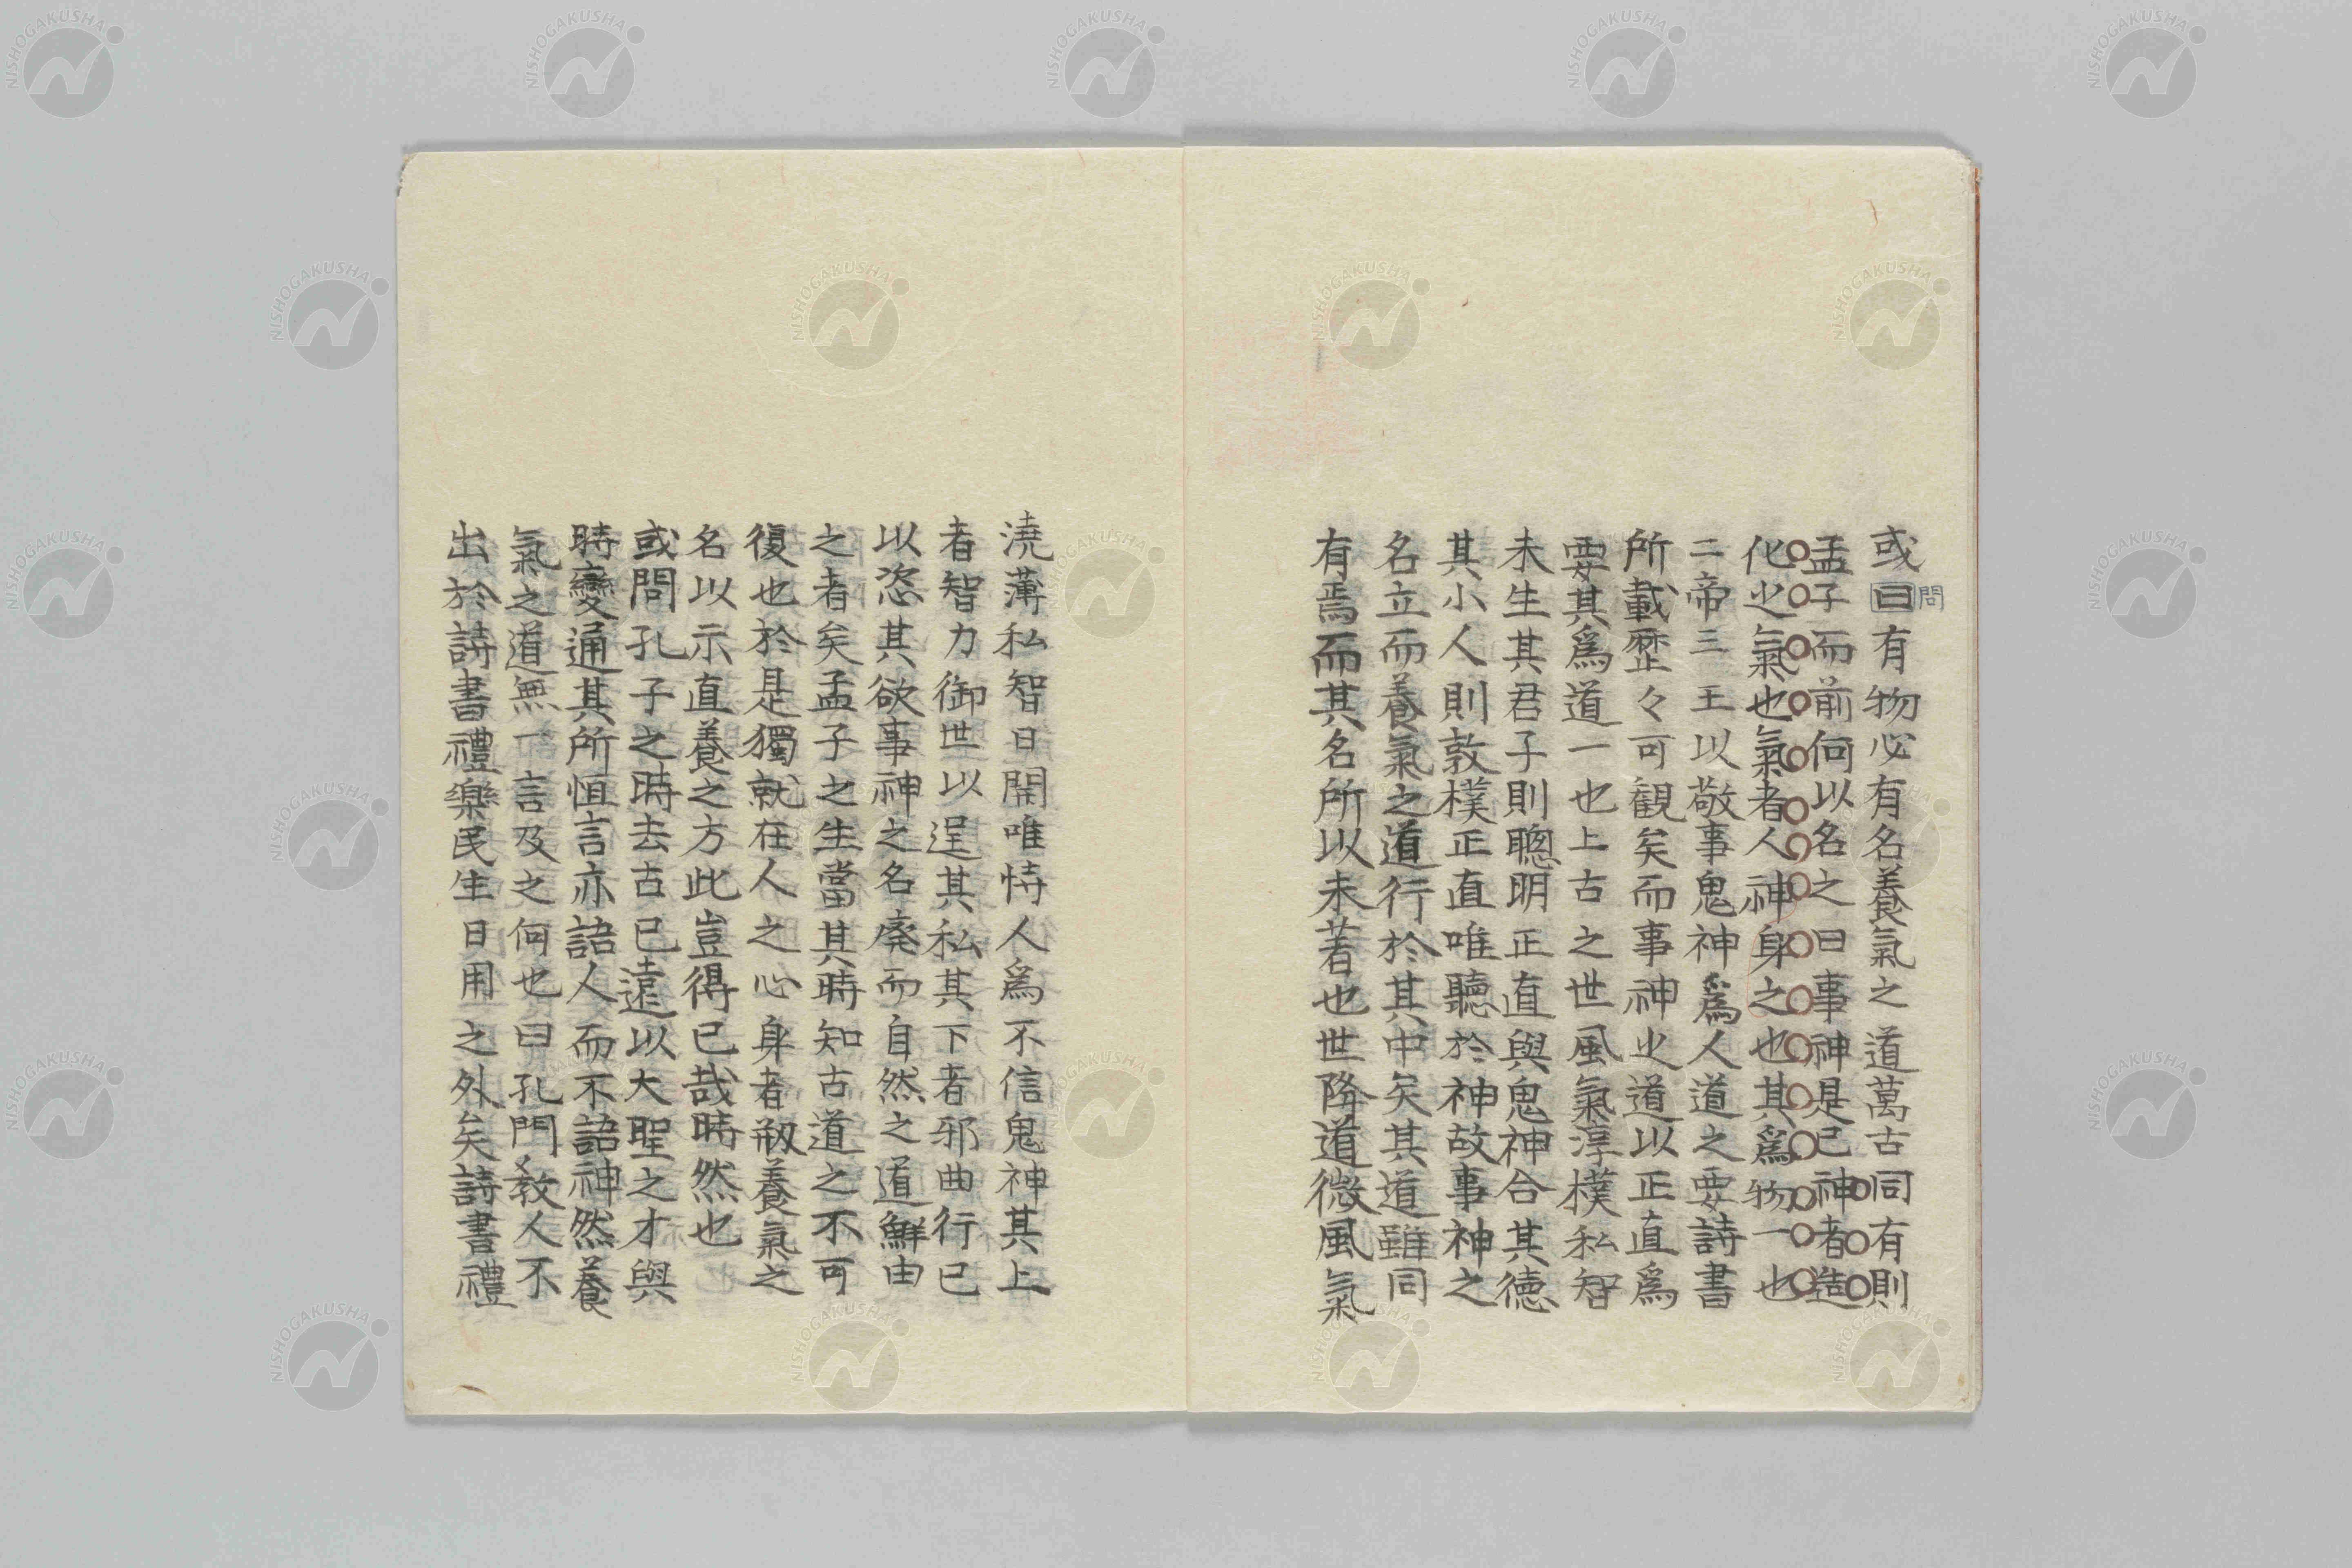 或曰有物必有名養氣之道萬古同有則
問
孟子而前何以名之曰事神是已神者造
化之氣也氣者人神身之也其爲物一也
二帝三王以敬事鬼神爲人道之要詩書
所載歴々可観矣而事神之道以正直爲
要其爲道一也上古之世風氣淳樸私智
未生其君子則聰明正直與鬼神合其德
其小人則敦樸正直唯聽於神故事神之
名立而養氣之道行於其中矣其道雖同
有焉而其名所以未著也世降道微風氣
澆薄私智日開唯恃人爲不信鬼神其上
者智力御世以逞其私其下者邪曲行已
以恣其欲事神之名廃而自然之道鮮由
之者矣孟子之生當其時知古道之不可
復也於是獨就在人之心身者剏養氣之
名以示直養之方此豈得已哉時然也
或問孔子之時去古已遠以大聖之才與
時變通其所恒言亦語人而不語神然養
氣之道無一言及之何也曰孔門教人不
出於詩書禮樂民生日用之外矣詩書禮
NISHOGAKUSHA